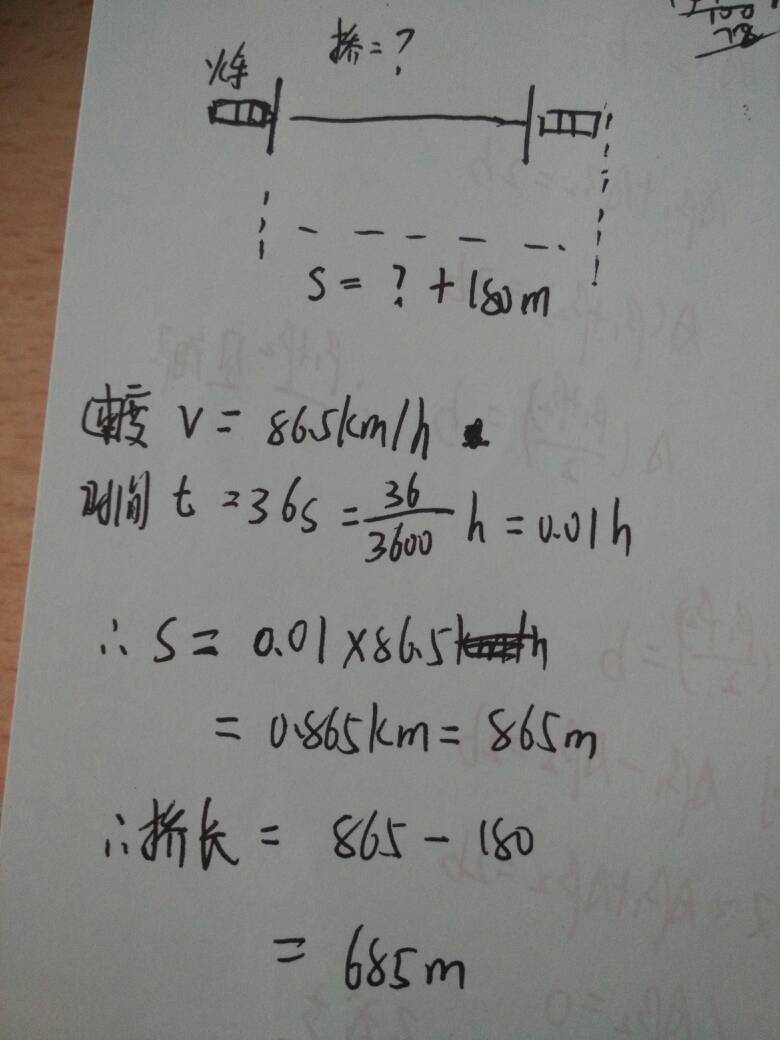 桥=?
火车
S = ? + 180m
速度 V = 86.5km/h
时间 t = 36s = 36/3600 h = 0.01h
∴ S = 0.01 × 86.5
= 0.865km = 865m
∴桥长 = 865 - 180
= 685m